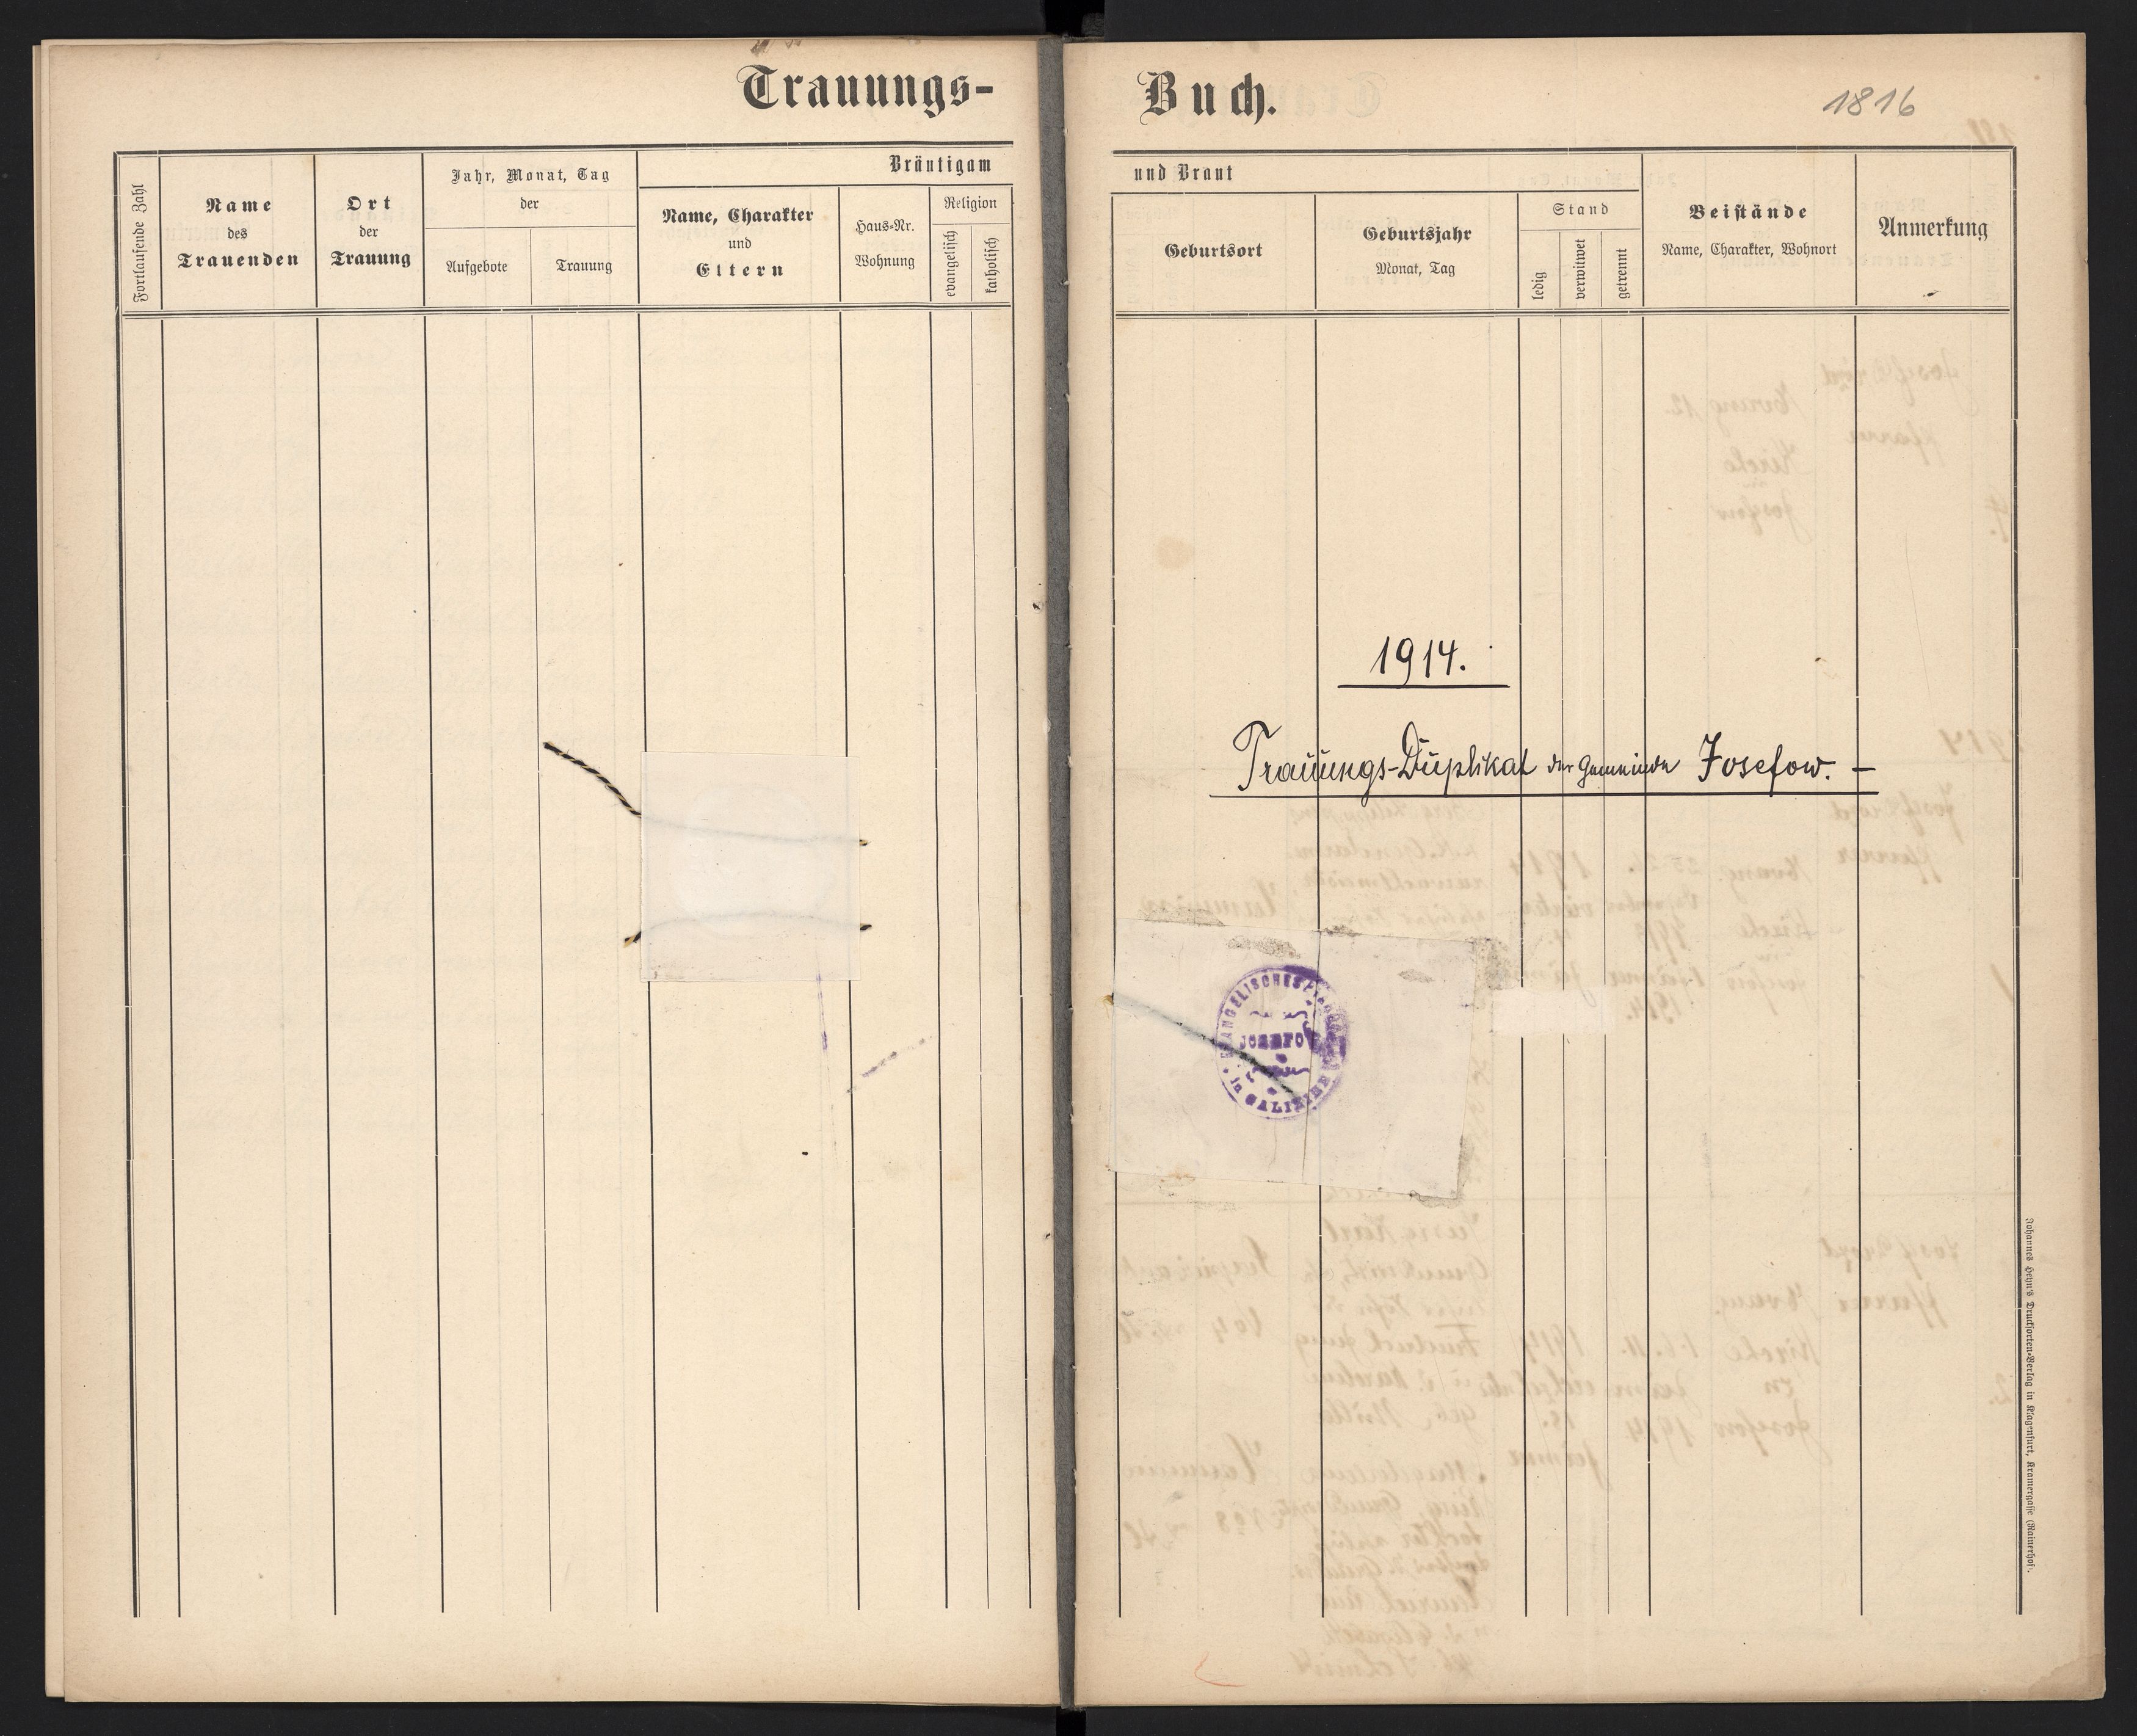 Trauungs-
Fortlaufende Zahl
Name
des
Trauenden
Ort
der
Trauung
Jahr, Monat, Tag
der
Aufgebote
Trauung
Bräutigam
Name, Charakter
und
Eltern
Haus-Nr.
Wohnung
Religion
evangelisch
katholisch
Buch.
1816
und Braut
Geburtsort
Geburtsjahr
Monat, Tag
Stand
ledig
verwitwet
getrennt
Beistände
Name, Charakter, Wohnort
Anmerkung
1914.
Trauungs-Duplikat der Gemeinde Josefow. –
EVANGELISCHES
in GALIZIEN
Johannes Heyn's Drucksorten-Verlag in Klagenfurt, Kramergasse (Rainerhof).